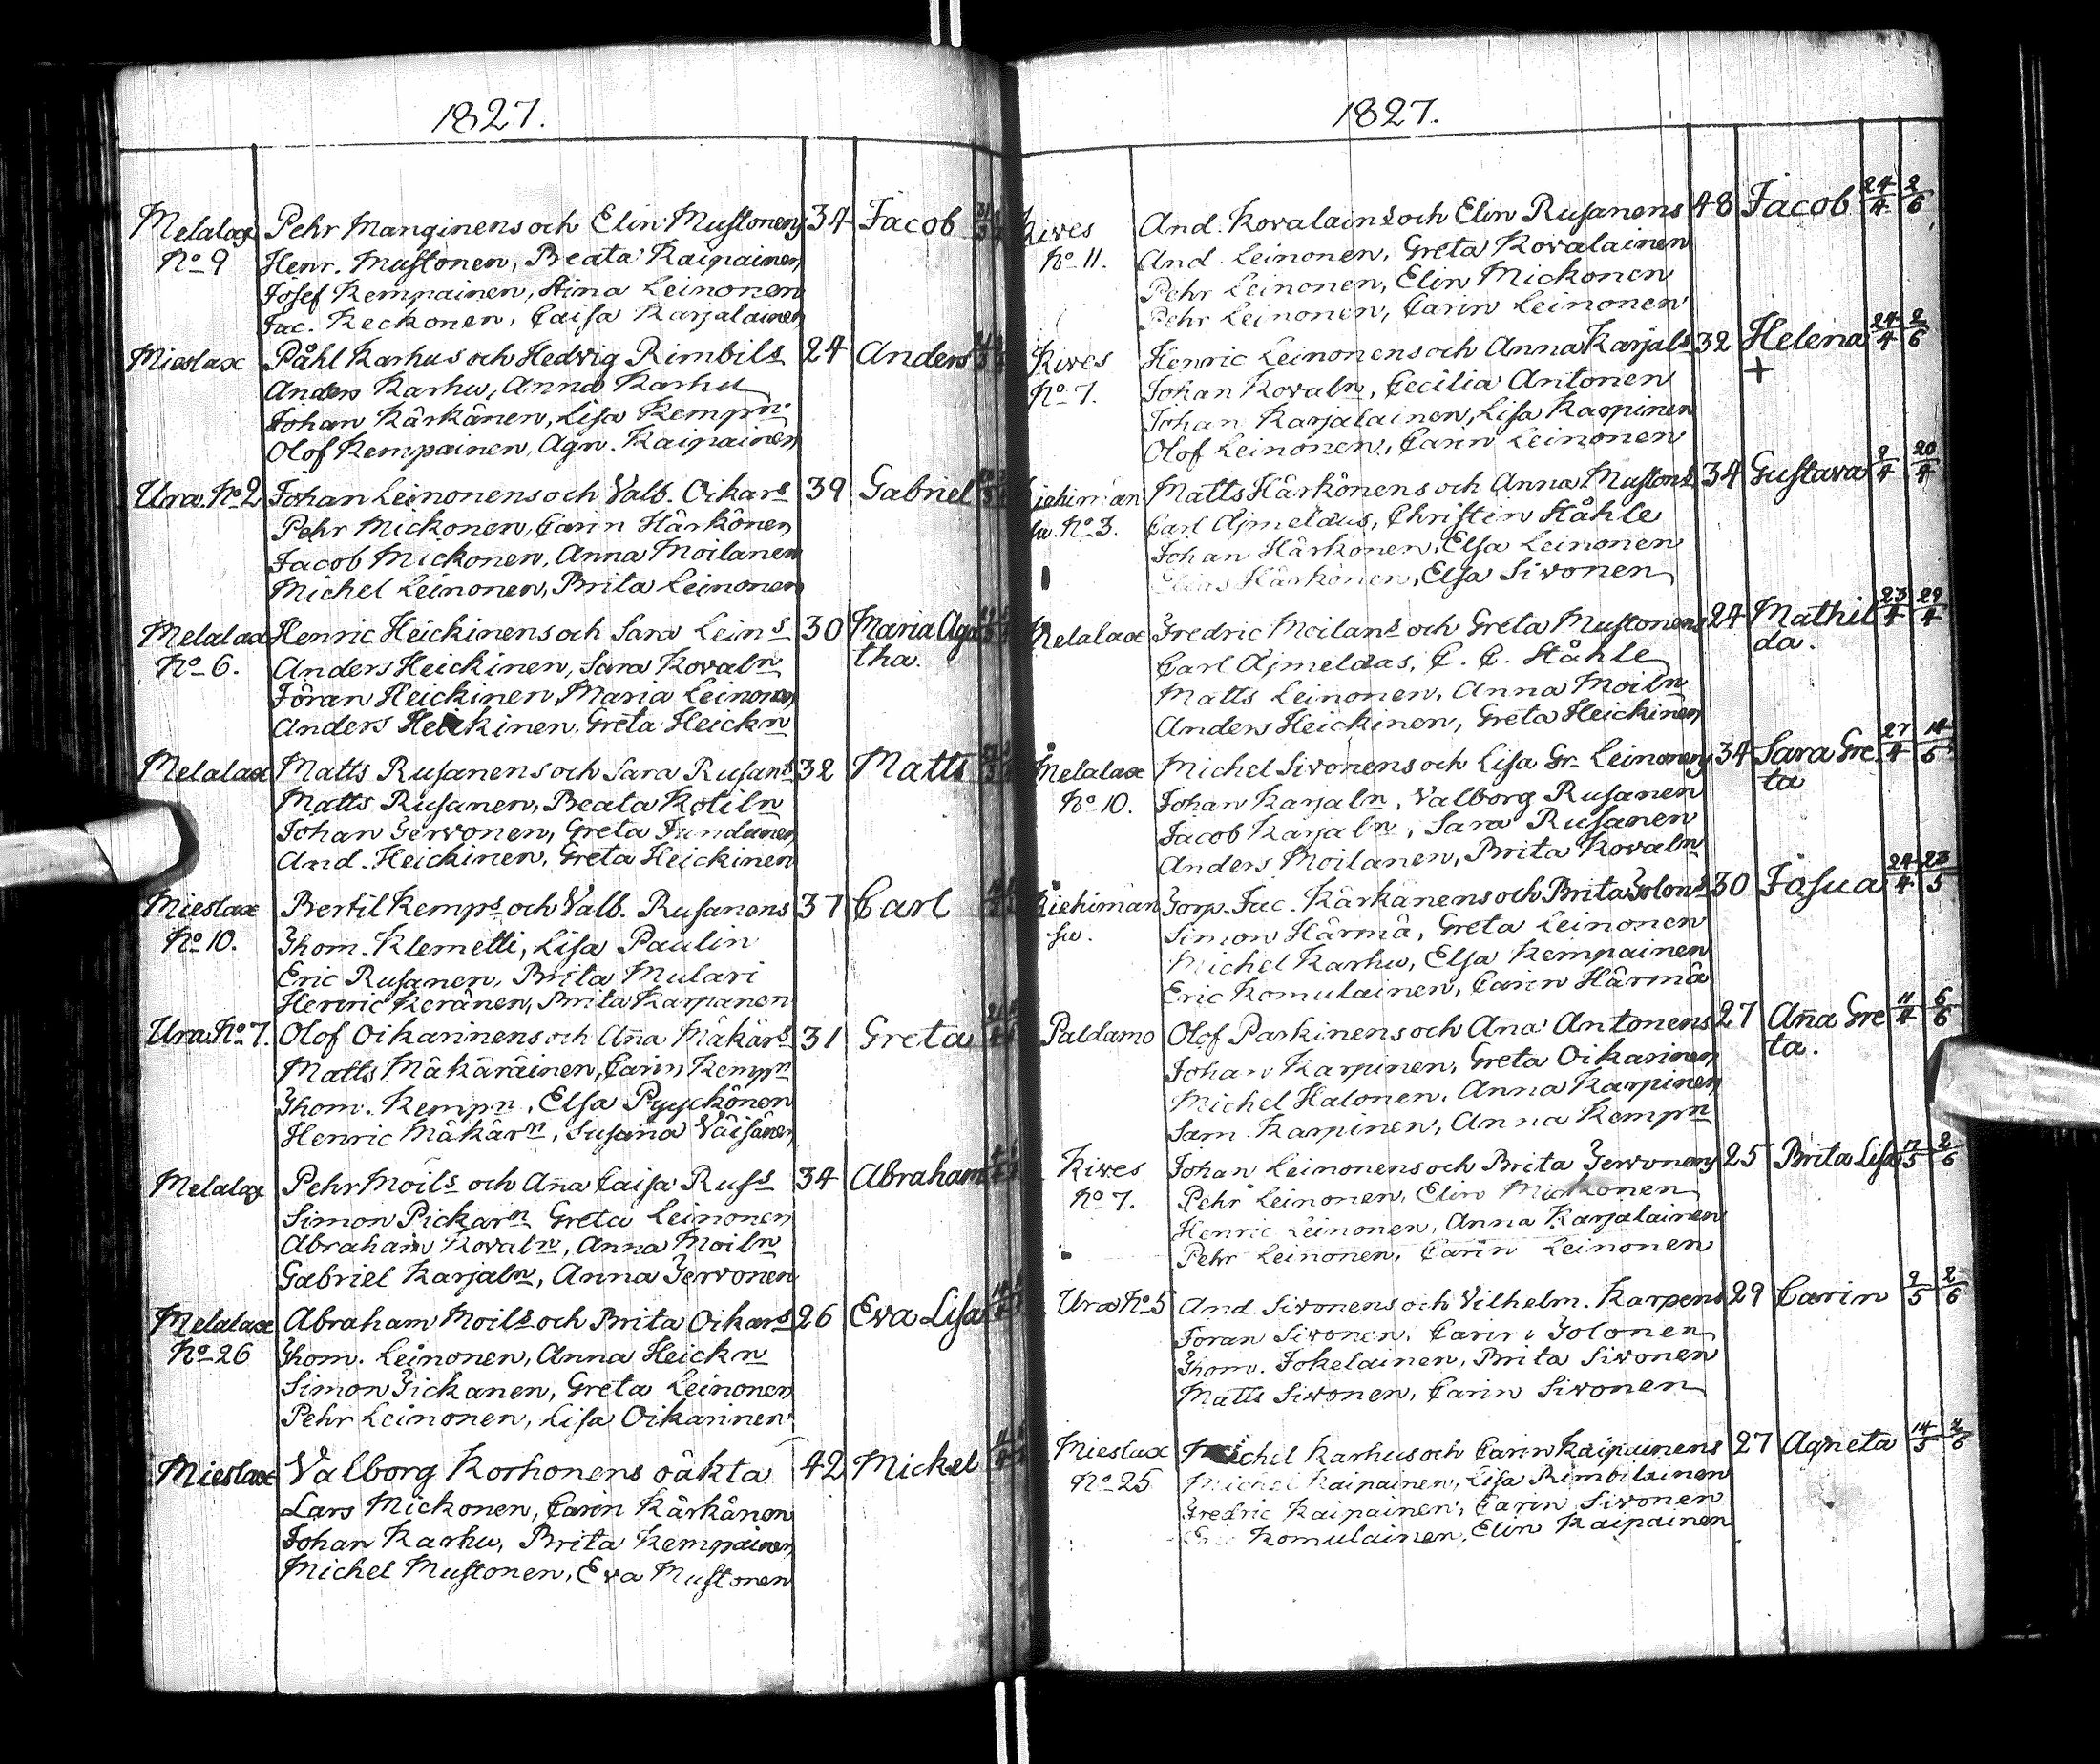 1827.
Melalax Pehr Manginens och Elin Mustonens 34 Jacob
No 9 Henr. Mustonen, Beata Kaipainen
Josef Kempainen, Stina Leinonen
Jac. Keckonen, Caisa Karjalainen
Mieslax Påhl Karhus och Hedvig Rimbils 24 Anders
Anders Karhu, Anna Karhu
Johan Kärkänen, Lisa Kempn.
Olof Kempainen, Agn. Kaipainen
Ura. No 2 Johan Leinonens och Valb. Oikars 39 Gabriel
Pehr Mickonen, Carin Härkönen
Jacob Mickonen, Anna Moilanen
Michel Leinonen, Brita Leinonen
Melalax Henric Heickinens och Sara Leins 30 Maria Aga
No 6. Anders Heickinen, Sara Kovaln tha.
Jöran Heickinen, Maria Leinonen
Anders Heickinen. Greta Heickn
Melalax Matts Rusanens och Sara Rusans 32 Matts
Matts Rusanen, Beata Kotiln
Johan Tervonen, Greta
And. Heickinen, Greta Heickinen
Mieslax Bertil Kemps och Valb. Rusanens 37 Carl
No 10. Thom. Klemetti, Lisa Paulin
Eric Rusanen, Brita Mulari
Henric Keränen, Brita Karpanen
Ura No 7. Olof Oikarinens och Anna Mäkärs 31 Greta
Matts Mäkäräinen, Carin Kempn
Thom. Kempn, Elsa Pyyckönen
Henric Mäkärn, Susanna Väisänen
Melalax Pehr Moils och Anna Caisa Russ 34 Abraham
Simon Pickarn Greta Leinonen
Abraham Kovaln, Anna Moiln
Gabriel Karjaln, Anna Tervonen
Melalax Abraham Moils och Brita Oikars 26 Eva Lisa
No 26 Thom. Leinonen, Anna Heickn
Simon Tickanen, Greta Leinonen
Pehr Leinonen, Lisa Oikarinen
Mieslax Valborg Korhonens oäkta 42 Mickel
Lars Mickonen, Carin Kärkänen
Johan Karhu, Brita Kempainen
Michel Mustonen, Eva Mustonen
1827.
Kives And. Kovalains och Elin Rusanens 48 Jacob 24/4 2/6
No 11. And. Leinonen, Greta Kovalainen
Pehr Leinonen, Elin Mickonen
Pehr Leinonen, Carin Leinonen
Kives Henric Leinonens och Anna Karjals 32 Helena 24/4 2/6
No 7. Johan Kovaln, Cecilia Antonen +
Johan Karjalainen, Lisa Karpinen
Olof Leinonen, Carin Leinonen
Riehimän Matts Härkönens och Anna Mustons 34 Gustava 9/4 20/4
su. No 3. Carl Ajmelaus, Christin Ståhle
Johan Härkönen, Elsa Leinonen
Härkönen, Elsa Sivonen
Melalax Fredric Moilans och Greta Mustonens 24 Mathil 23/4 29/4
Carl Ajmelaus, C. C. Ståhle da.
Matts Leinonen, Anna Moiln
Anders Heickinen, Greta Heickinen
Melalax Michel Sivonens och Lisa Gr. Leinonens 34 Sara Gre 27/4 14/5
No 10. Johan Karjaln, Valborg Rusanen ta
Jacob Karjaln, Sara Rusanen
Anders Moilanen, Brita Kovaln
Riehimän Torp. Jac. Kärkänens och Brita Tolons 30 Josua 24/4 23/5
su. Simon Härmä, Greta Leinonen
Michel Karhu, Elsa Kempainen
Eric Komulainen, Carin Härmä
Paldamo Olof Parkinens och Anna Antonens 27 Anna Gre 11/4 6/6
Johan Karpinen, Greta Oikarinen ta.
Michel Halonen, Anna Karpinen
Sam. Karpinen, Anna Kempn
Kives Johan Leinonens och Brita Tervonens 25 Brita Lisa 17/5 2/6
No 7. Pehr Leinonen, Elin Mickonen
Henric Leinonen, Anna Karjalainen
Pehr Leinonen, Carin Leinonen
Ura No 5 And. Sivonens och Vilhelm. Karpens 29 Carin 9/5 2/6
Jöran Sivonen, Carin Tolonen
Thom. Jokelainen, Brita Sivonen
Matts Sivonen, Carin Sivonen
Mieslax Michel Karhus och Carin Kaipainens 27 Agneta 14/5 2/6
No 25 Michel Kaipainen, Lisa Rimbilainen
Fredric Kaipainen, Carin Sivonen
Eric Komulainen, Elin Kaipainen